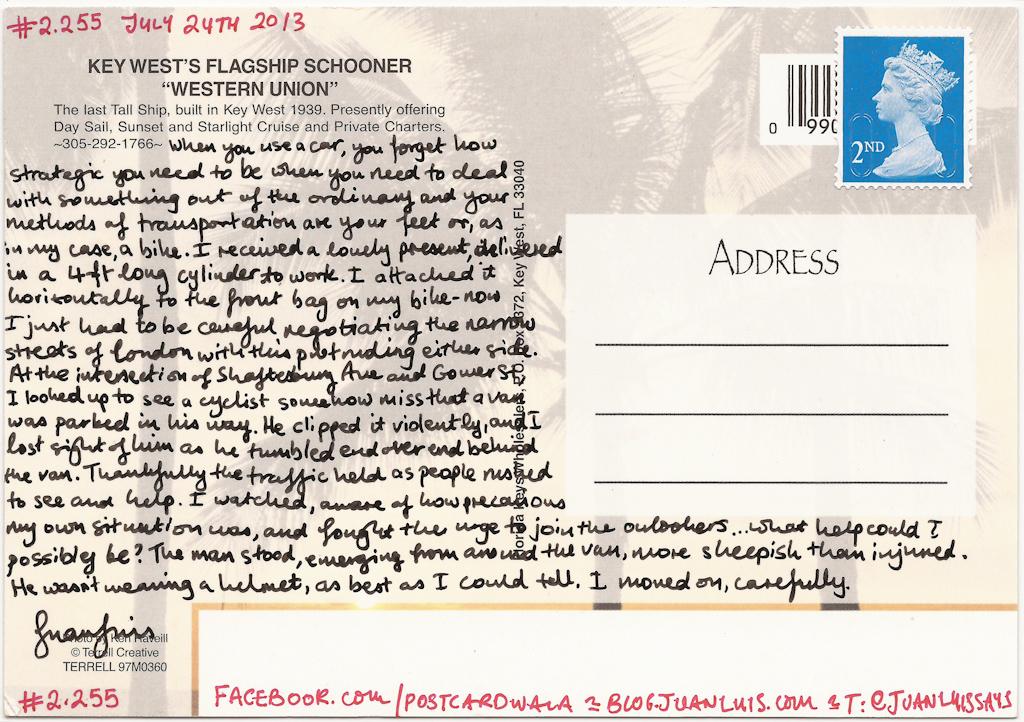 #2.255 JULY 24TH 2013
KEY WEST'S FLAGSHIP SCHOONER
"WESTERN UNION"
The last Tall Ship, built in Key West 1939. Presently offering
Day Sail, Sunset and Starlight Cruise and Private Charters.
~305-292-1766~ When you use a car, you forget how
strategic you need to be when you need to deal
with something out of the ordinary and your
methods of transportation are your feet or, as
in my case, a bike. I received a lovely present, delivered
in a 4ft long cylinder to work. I attached it
horizontally to the front bag on my bike-now
I just had to be careful negotiating the narrow
streets of London with this protruding either side.
At the intersection of Shaftesbury Ave and Gower St,
I looked up to see a cyclist somehow miss that a van
was parked in his way. He clipped it violently, and I
lost sight of him as he tumbled end over end behind
the van. Thankfully the traffic held as people rushed
to see and help. I watched, aware of how precarious
my own situation was, and fought the urge to join the onlookers...what help could I
possibly be? The man stood, emerging from around the van, more sheepish than injured.
He wasn't wearing a helmet, as best as I could tell. I moved on, carefully.
Juanluis
Photo by Ken Raveill
© Terrell Creative
TERRELL 97M0360
#2.255
Key West, FL 33040
0 990
2ND
ADDRESS
FACEBOOK.COM/POSTCARDWALA & BLOG.JUANLUIS.COM & T: @JUANLUISSAYS